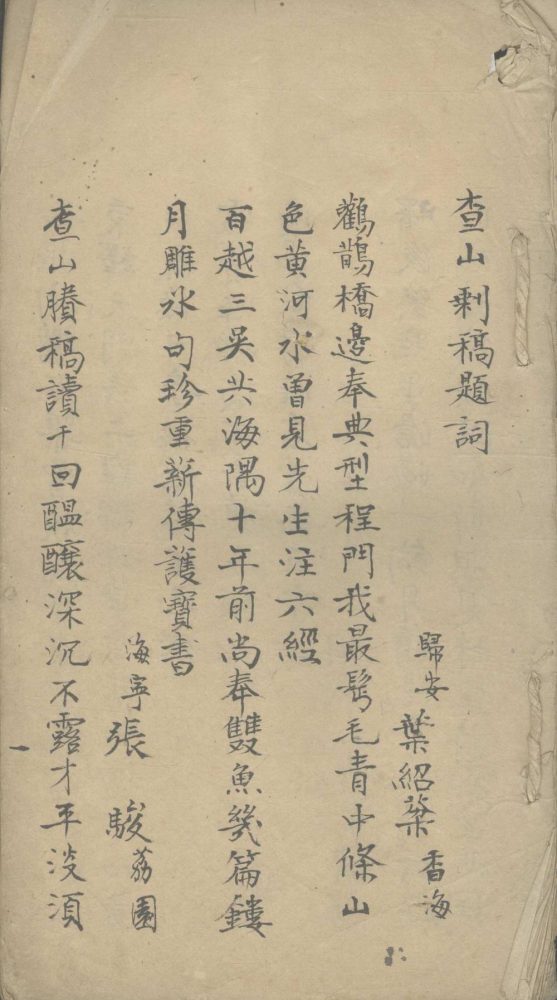 查山剩稿題詞
歸安葉紹棻香海
鸛鵲橋邊奉典型程門我最髩毛青中條山
色黄河水曽見先生注六經
百越三吳共海隅十年前尚奉雙魚幾篇鏤
月雕氷句珍重薪傳護寶書
海寧張駿荔園
查山賸稿讀千回醞釀深沉不露才平淡須